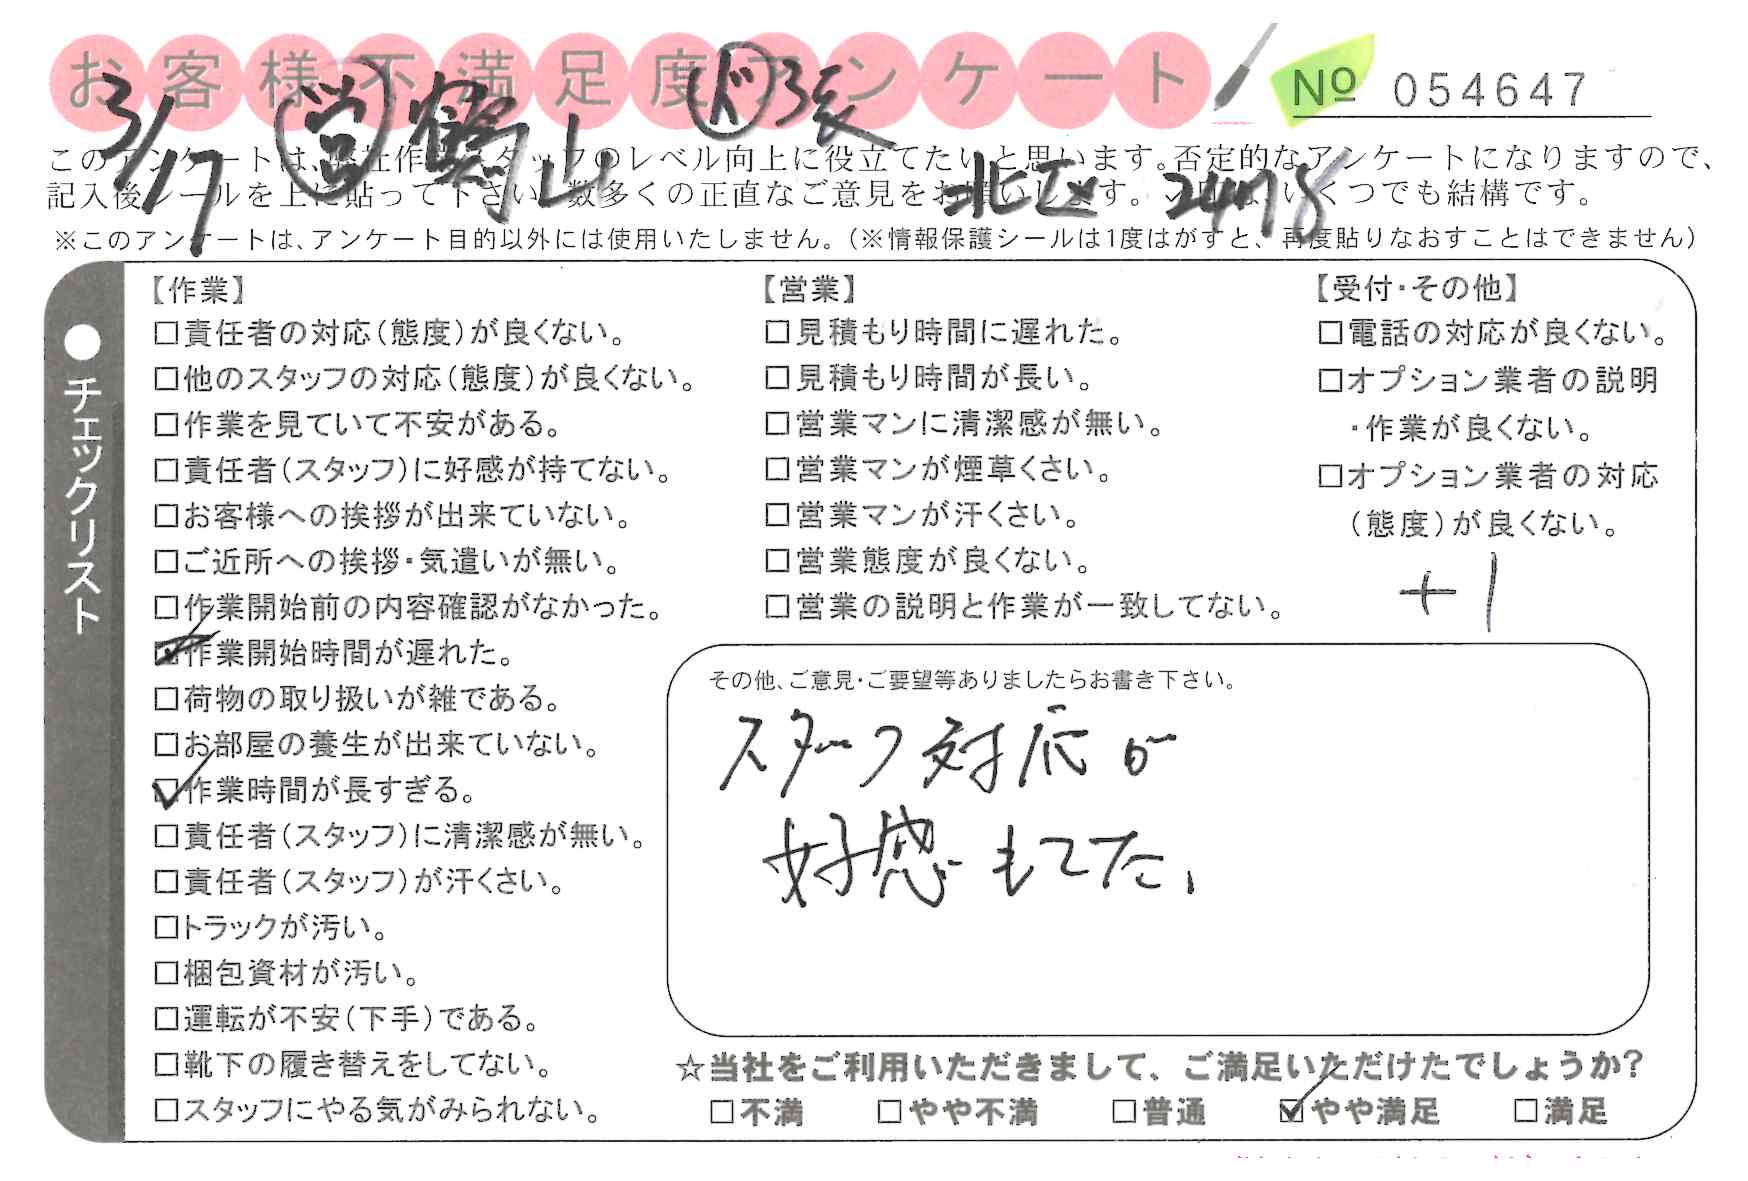 お客様不満足度アンケート
№ 054647
3/17 営 鶴山 ド 3張
北区 2478
このアンケートは、弊社作業スタッフのレベル向上に役立てたいと思います。否定的なアンケートになりますので、
記入後シールを上に貼って下さい。数多くの正直なご意見をお願いします。✓印は、いくつでも結構です。
※このアンケートは、アンケート目的以外には使用いたしません。（※情報保護シールは1度はがすと、再度貼りなおすことはできません）
●チェックリスト
【作業】
□責任者の対応（態度）が良くない。
□他のスタッフの対応（態度）が良くない。
□作業を見ていて不安がある。
□責任者（スタッフ）に好感が持てない。
□お客様への挨拶が出来ていない。
□ご近所への挨拶・気遣いが無い。
□作業開始前の内容確認がなかった。
☑作業開始時間が遅れた。
□荷物の取り扱いが雑である。
□お部屋の養生が出来ていない。
☑作業時間が長すぎる。
□責任者（スタッフ）に清潔感が無い。
□責任者（スタッフ）が汗くさい。
□トラックが汚い。
□梱包資材が汚い。
□運転が不安（下手）である。
□靴下の履き替えをしてない。
□スタッフにやる気がみられない。
【営業】
□見積もり時間に遅れた。
□見積もり時間が長い。
□営業マンに清潔感が無い。
□営業マンが煙草くさい。
□営業マンが汗くさい。
□営業態度が良くない。
□営業の説明と作業が一致してない。
【受付・その他】
□電話の対応が良くない。
□オプション業者の説明
・作業が良くない。
□オプション業者の対応
（態度）が良くない。
+1
その他、ご意見・ご要望等ありましたらお書き下さい。
スタッフ対応が
好感もてた、
☆当社をご利用いただきまして、ご満足いただけたでしょうか?
□不満 □やや不満 □普通 ☑やや満足 □満足